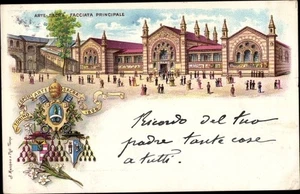 ARTE SACRA - FACCIATA PRINCIPALE
Ricordo del tuo
padre tante cose
a tutti.